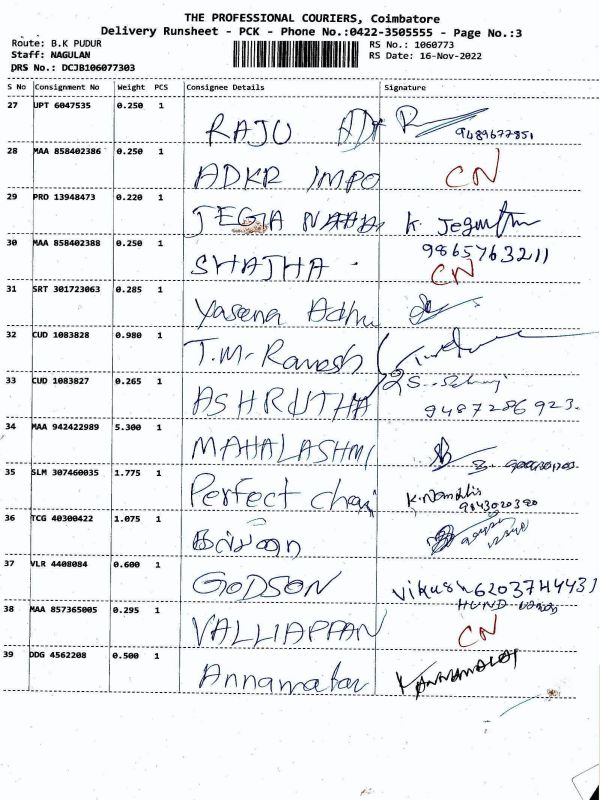 THE PROFESSIONAL COURIERS, Coimbatore
Delivery Runsheet - PCK - Phone No.:0422-3505555 - Page No.:3
Route: B.K PUDUR RS No.: 1060773
Staff: NAGULAN RS Date: 16-Nov-2022
DRS No.: DCJB106077303
S No Consignment No Weight PCS Consignee Details Signature
27 UPT 6047535 0.250 1
RAJU 9489677851
28 MAA 858402386 0.250 1
ADKR IMPO CN
29 PRO 13948473 0.220 1
JEGA K Jegan
9865763211
30 MAA 858402388 0.250 1
SHAJHA CN
31 SRT 301723063 0.285 1
Yasena Adhu
32 CUD 1083828 0.980 1
T.M. Ramesh
33 CUD 1083827 0.265 1
ASHRUTHA 9487286923.
34 MAA 942422989 5.300 1
MAHALASHMI
35 SLM 307460035 1.775 1
Perfect chai
9843020390
36 TCG 40300422 1.075 1
37 VLR 4408084 0.600 1
GODSON Vikush 6203744431
HUND
38 MAA 857365005 0.295 1
VALLIAPPAN CN
39 DDG 4562208 0.500 1
Annamalai K ANNAMALAI